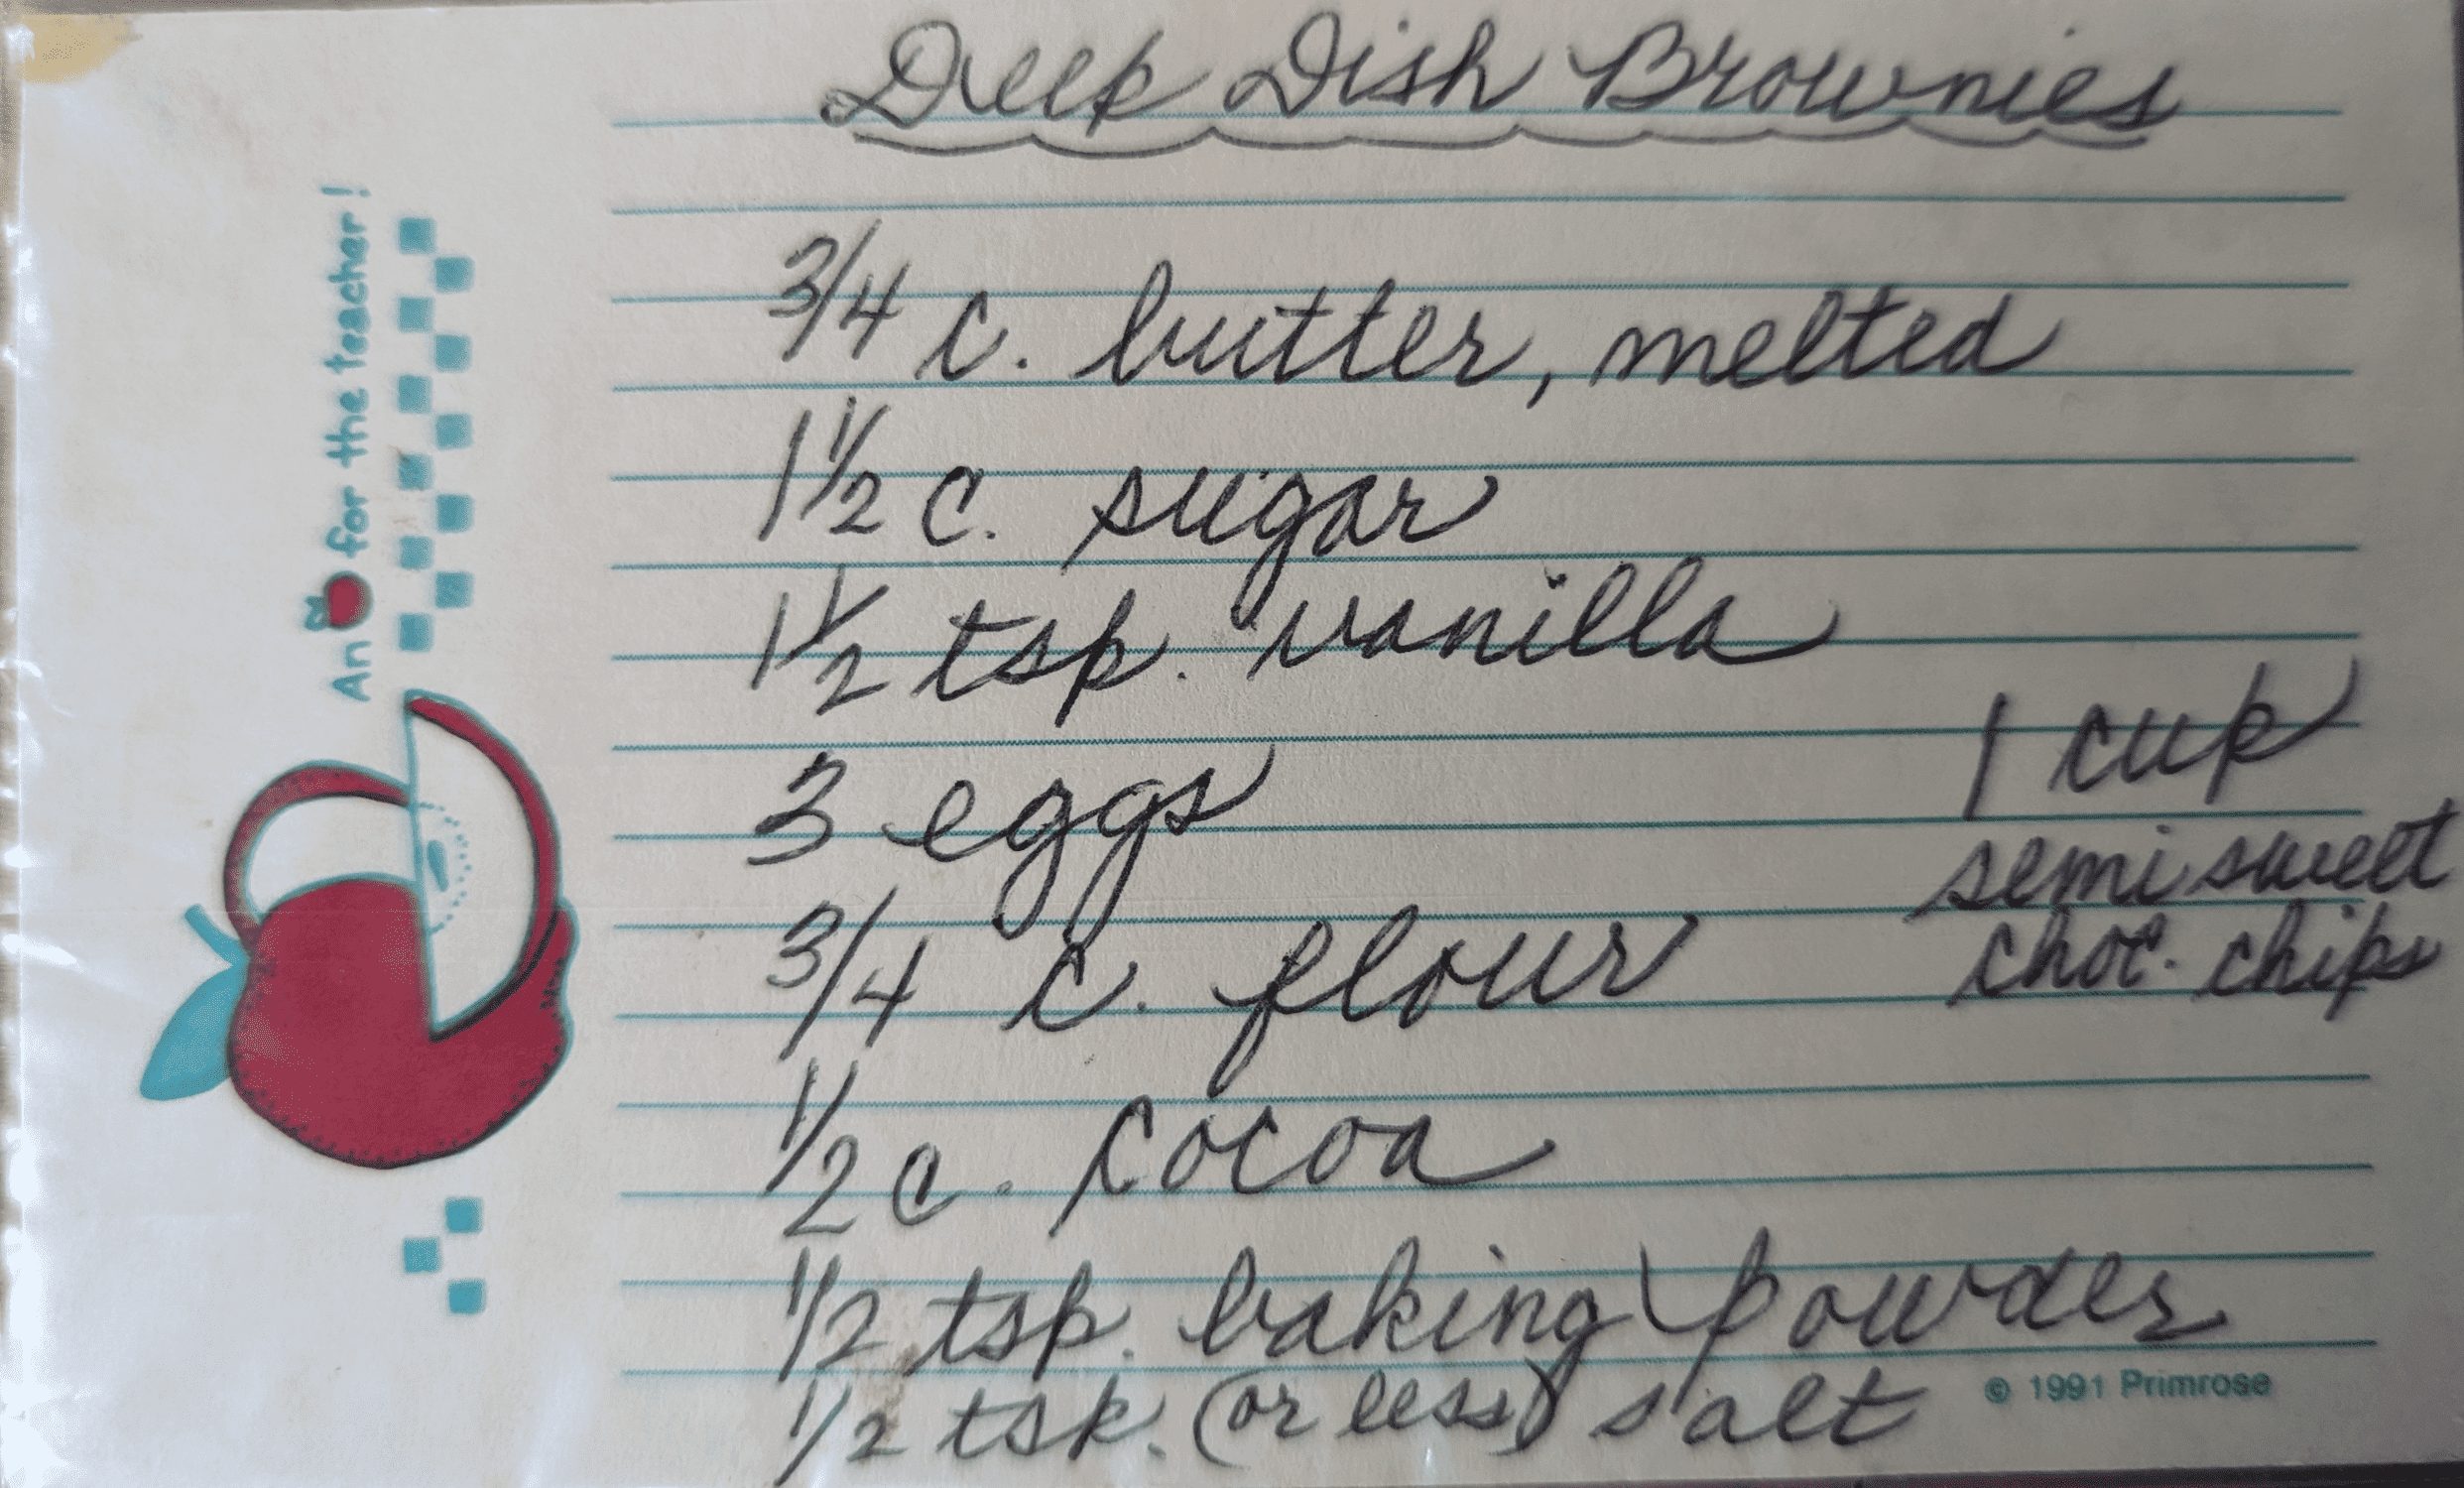 Deep Dish Brownies
3/4 c. butter, melted
1 1/2 c. sugar
1 1/2 tsp. vanilla
3 eggs
3/4 c. flour
1/2 c. cocoa
1/2 tsp. baking powder
1/2 tsp. (or less) salt
1 cup
semi sweet
choc. chips
An for the teacher!
© 1991 Primrose